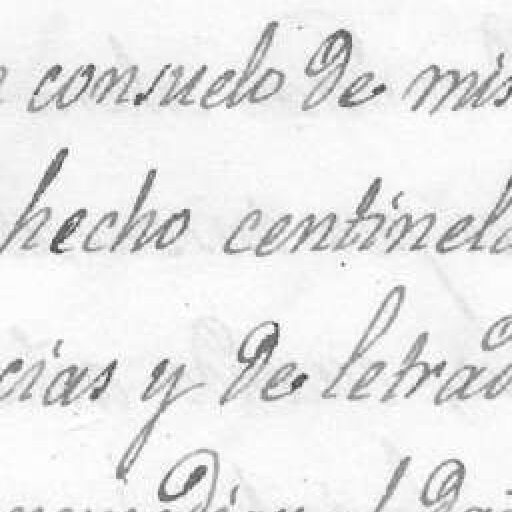 consuelo de mis
hecho centinela
cias y de letrad